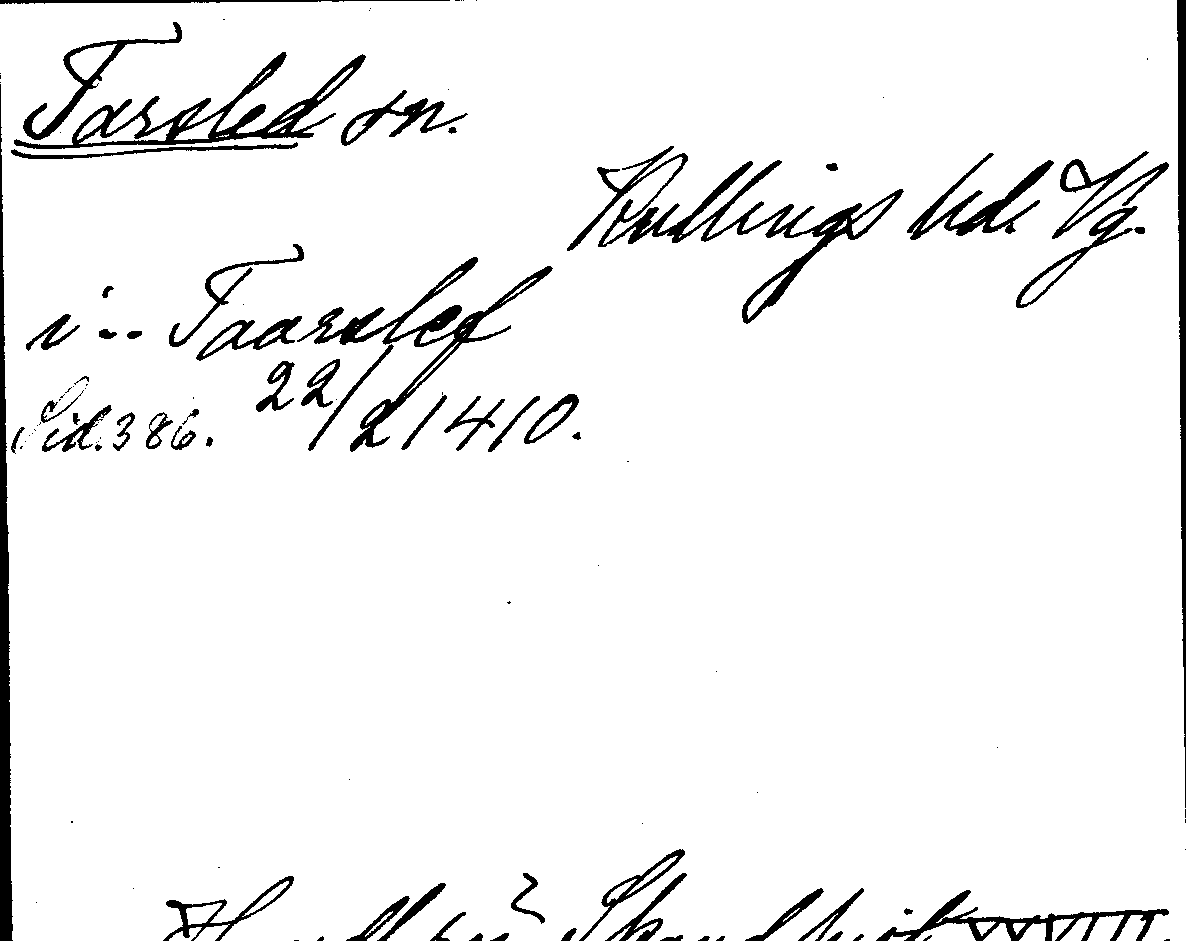 Tarsled sn.
Kullings hd. Vg.
i -- Taarsled
Sid. 386. 22/2 1410.
Skand hist XXVIII.